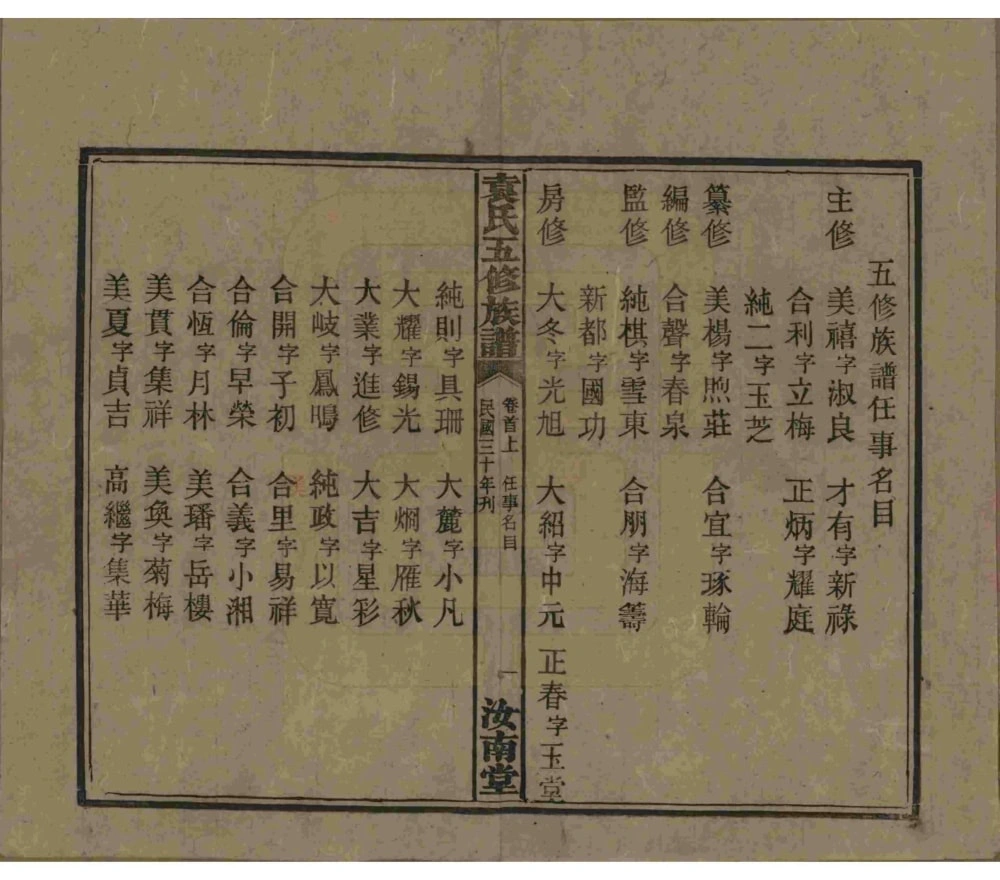 五修族譜任事名目
主修 美禧字淑良 才有字新祿
合利字立梅 正炳字耀庭
純二字玉芝
纂修 美楊字煦莊 合宜字琢輪
編修 合聲字春泉
監修 純棋字雪東 合朋字海籌
新都字國功
房修 大冬字光旭 大紹字中元 正春字玉堂
袁氏五修族譜 卷首上 任事名目 民國三十年刊 一 汝南堂
純則字具珊 大麓字小凡
大耀字錫光 大烱字雁秋
大業字進修 大吉字星彩
大岐字鳳鳴 純政字以寬
合開字子初 合里字易祥
合倫字早榮 合義字小湘
合恆字月林 美璠字岳樓
美貫字集祥 美奐字菊梅
美夏字貞吉 高繼字集華